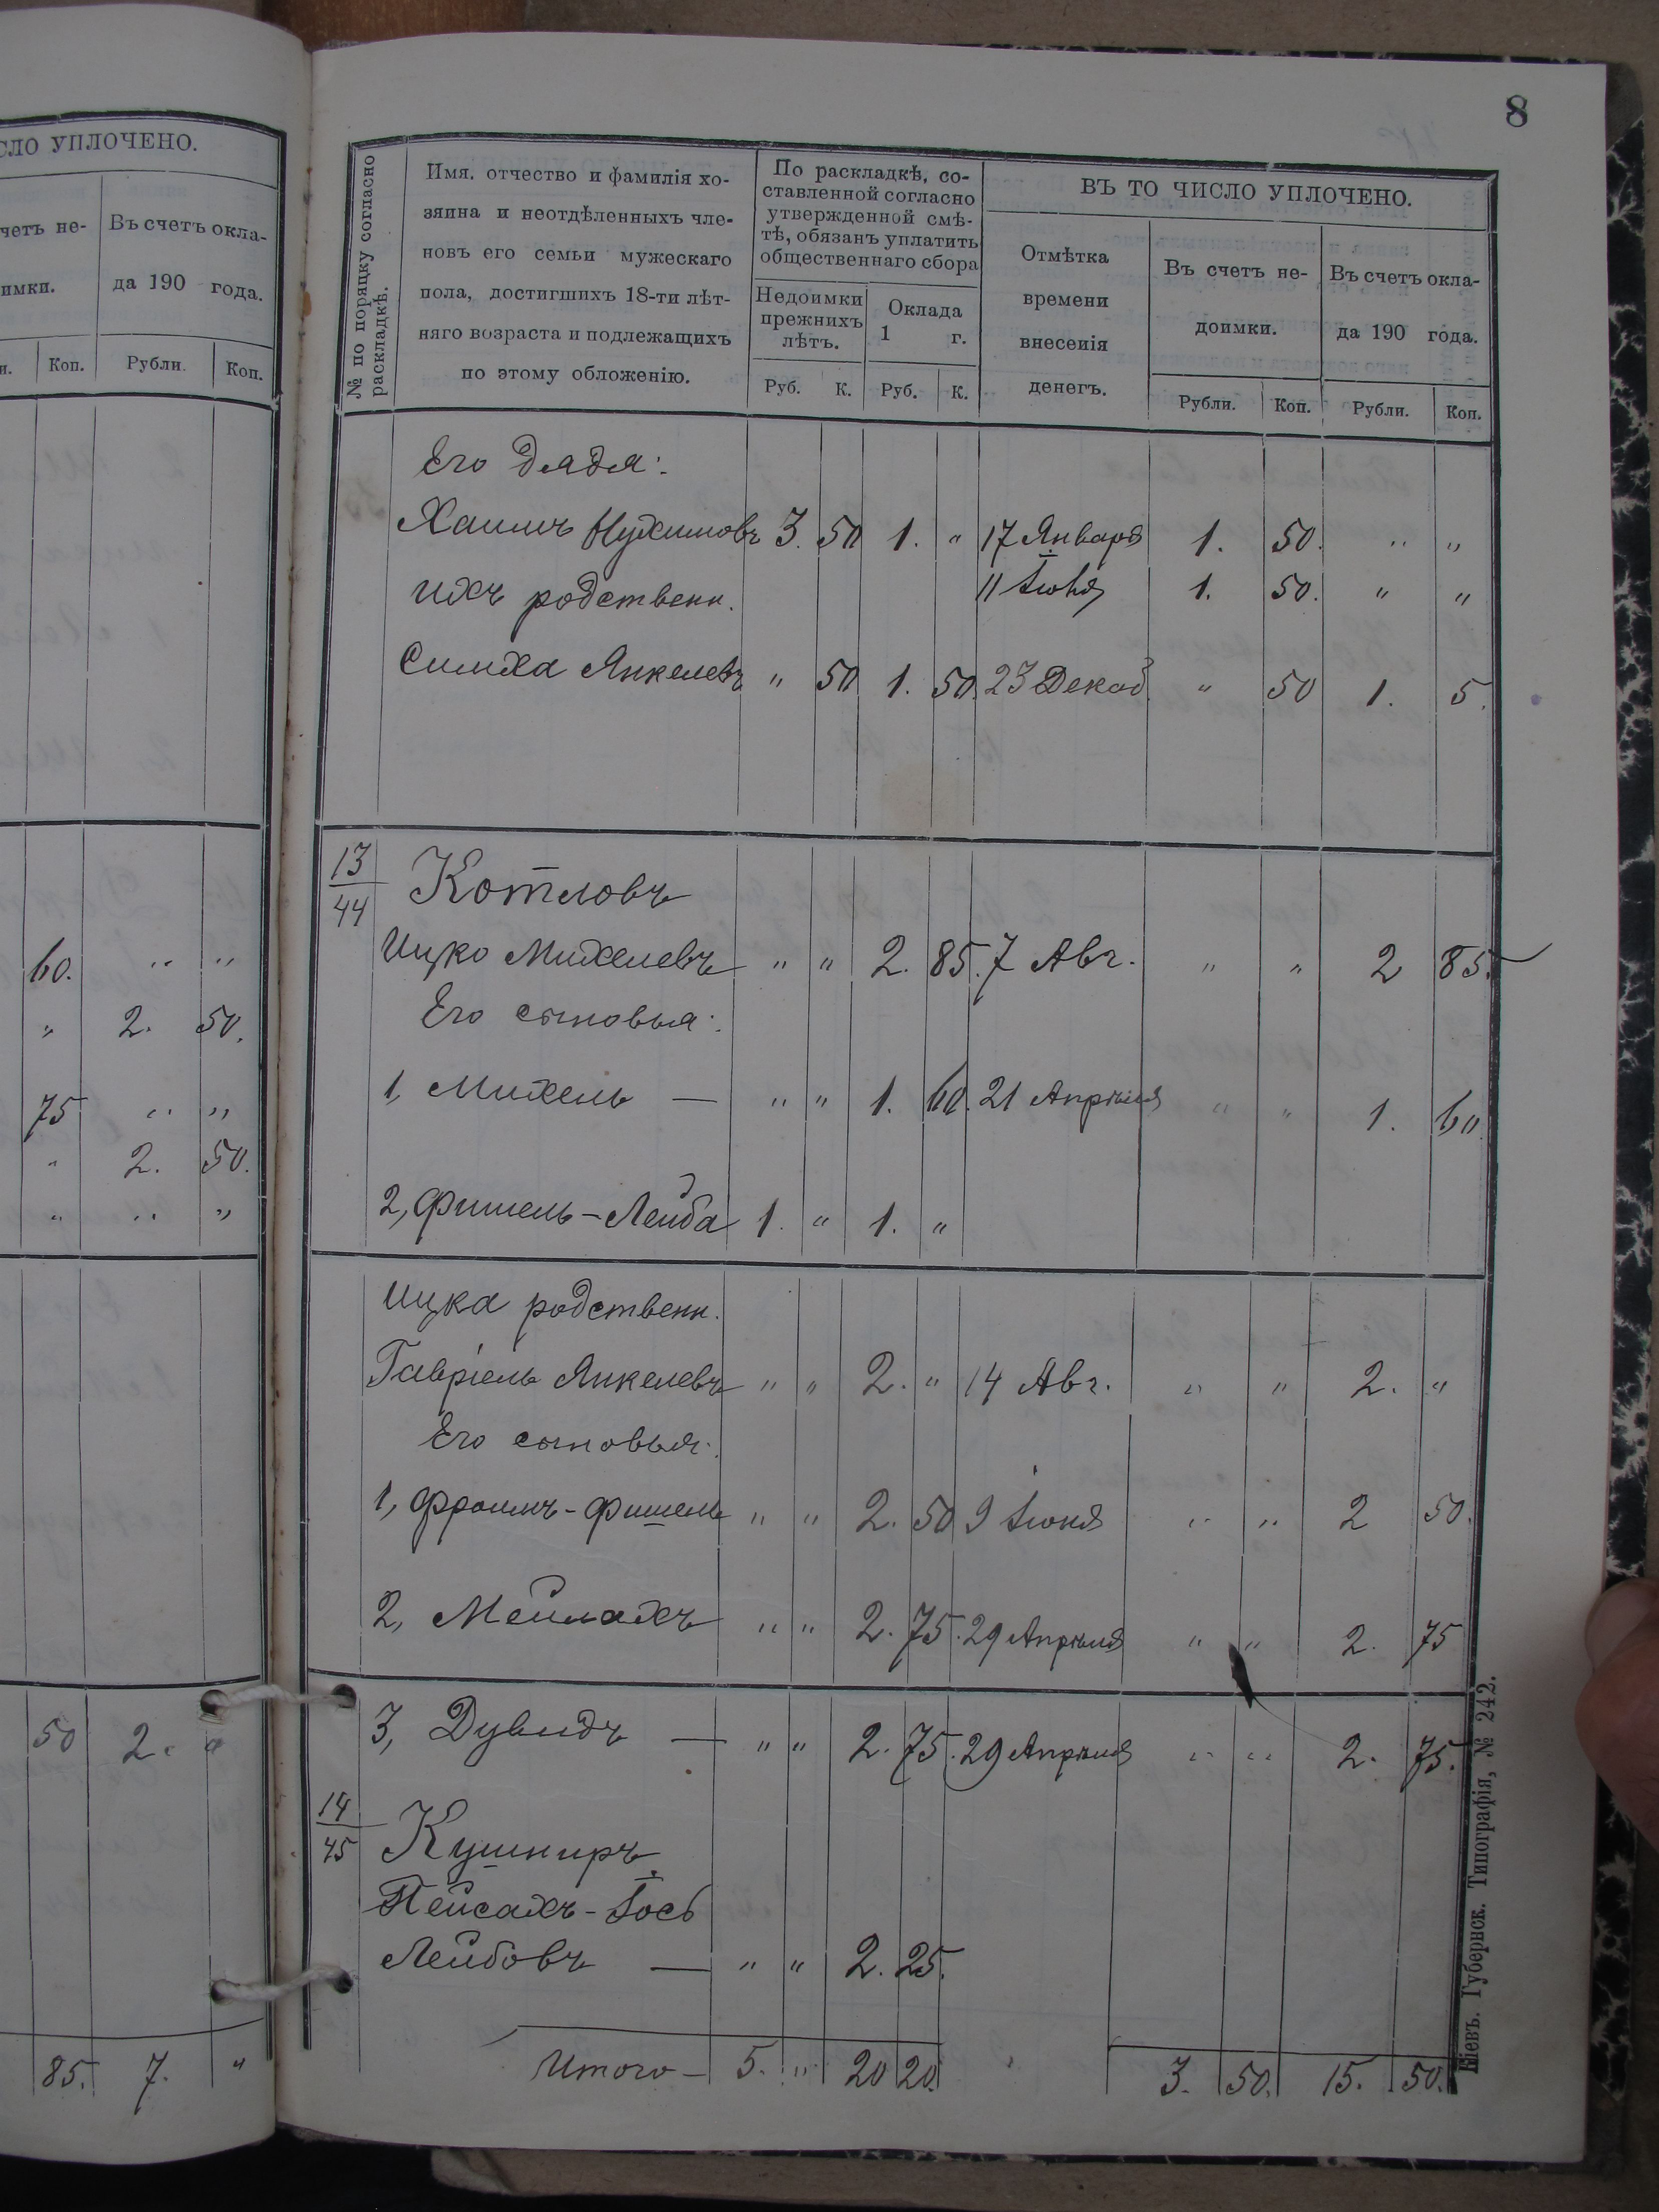 СЛО УПЛОЧЕНО.
четъ не-
Въ счетъ окла-
имки.
да 190 года.
и. Коп. Рубли. Коп.
60. " "
" 2. 50.
75 " "
" 2. 50.
" " "
50 2. "
85. 7. "
8
№ по порядку согласно
раскладкѣ.
Имя, отчество и фамилія хо-
зяина и неотдѣленныхъ чле-
новъ его семьи мужескаго
пола, достигшихъ 18-ти лѣт-
няго возраста и подлежащихъ
по этому обложенію.
По раскладкѣ, со-
ставленной согласно
утвержденной смѣ-
тѣ, обязанъ уплатить
общественнаго сбора
Недоимки
прежнихъ
лѣтъ.
Оклада
1 г.
Руб. К. Руб. К.
ВЪ ТО ЧИСЛО УПЛОЧЕНО.
Отмѣтка
времени
внесенія
денегъ.
Въ счетъ не-
доимки.
Въ счетъ окла-
да 190 года.
Рубли. Коп. Рубли. Коп.
Его дядя:
Хаимъ Нухимовъ 3. 50 1. " 17 Января 1. 50. " "
ихъ родственн. 11 Іюня 1. 50. " "
Симха Янкелевъ " 50 1. 50. 23 Декаб. " 50 1. 5.
13
44
Котловъ
Ицко Михелевъ " " 2. 85. 7 Авг. " " 2 85.
Его сыновья:
1, Михель — " " 1. 60. 21 Апрѣля " " 1. 60
2, Фишель-Лейба 1. " 1. "
Ицка родственн.
Гавріель Янкелевъ " " 2. " 14 Авг. " " 2. "
Его сыновья:
1, Фроимъ-Фишель " " 2. 50 9 Іюня " " 2 50.
2, Мейлахъ " " 2. 75. 29 Апрѣля " " 2. 75
3, Дувидъ — " " 2. 75. 29 Апрѣля " " 2. 75.
14
45
Кушниръ
Пейсахъ-Іось
Лейбовъ — " " 2. 25.
Итого — 5. " 20 20. 3. 50. 15. 50.
Кіевъ. Губернск. Типографія, № 242.